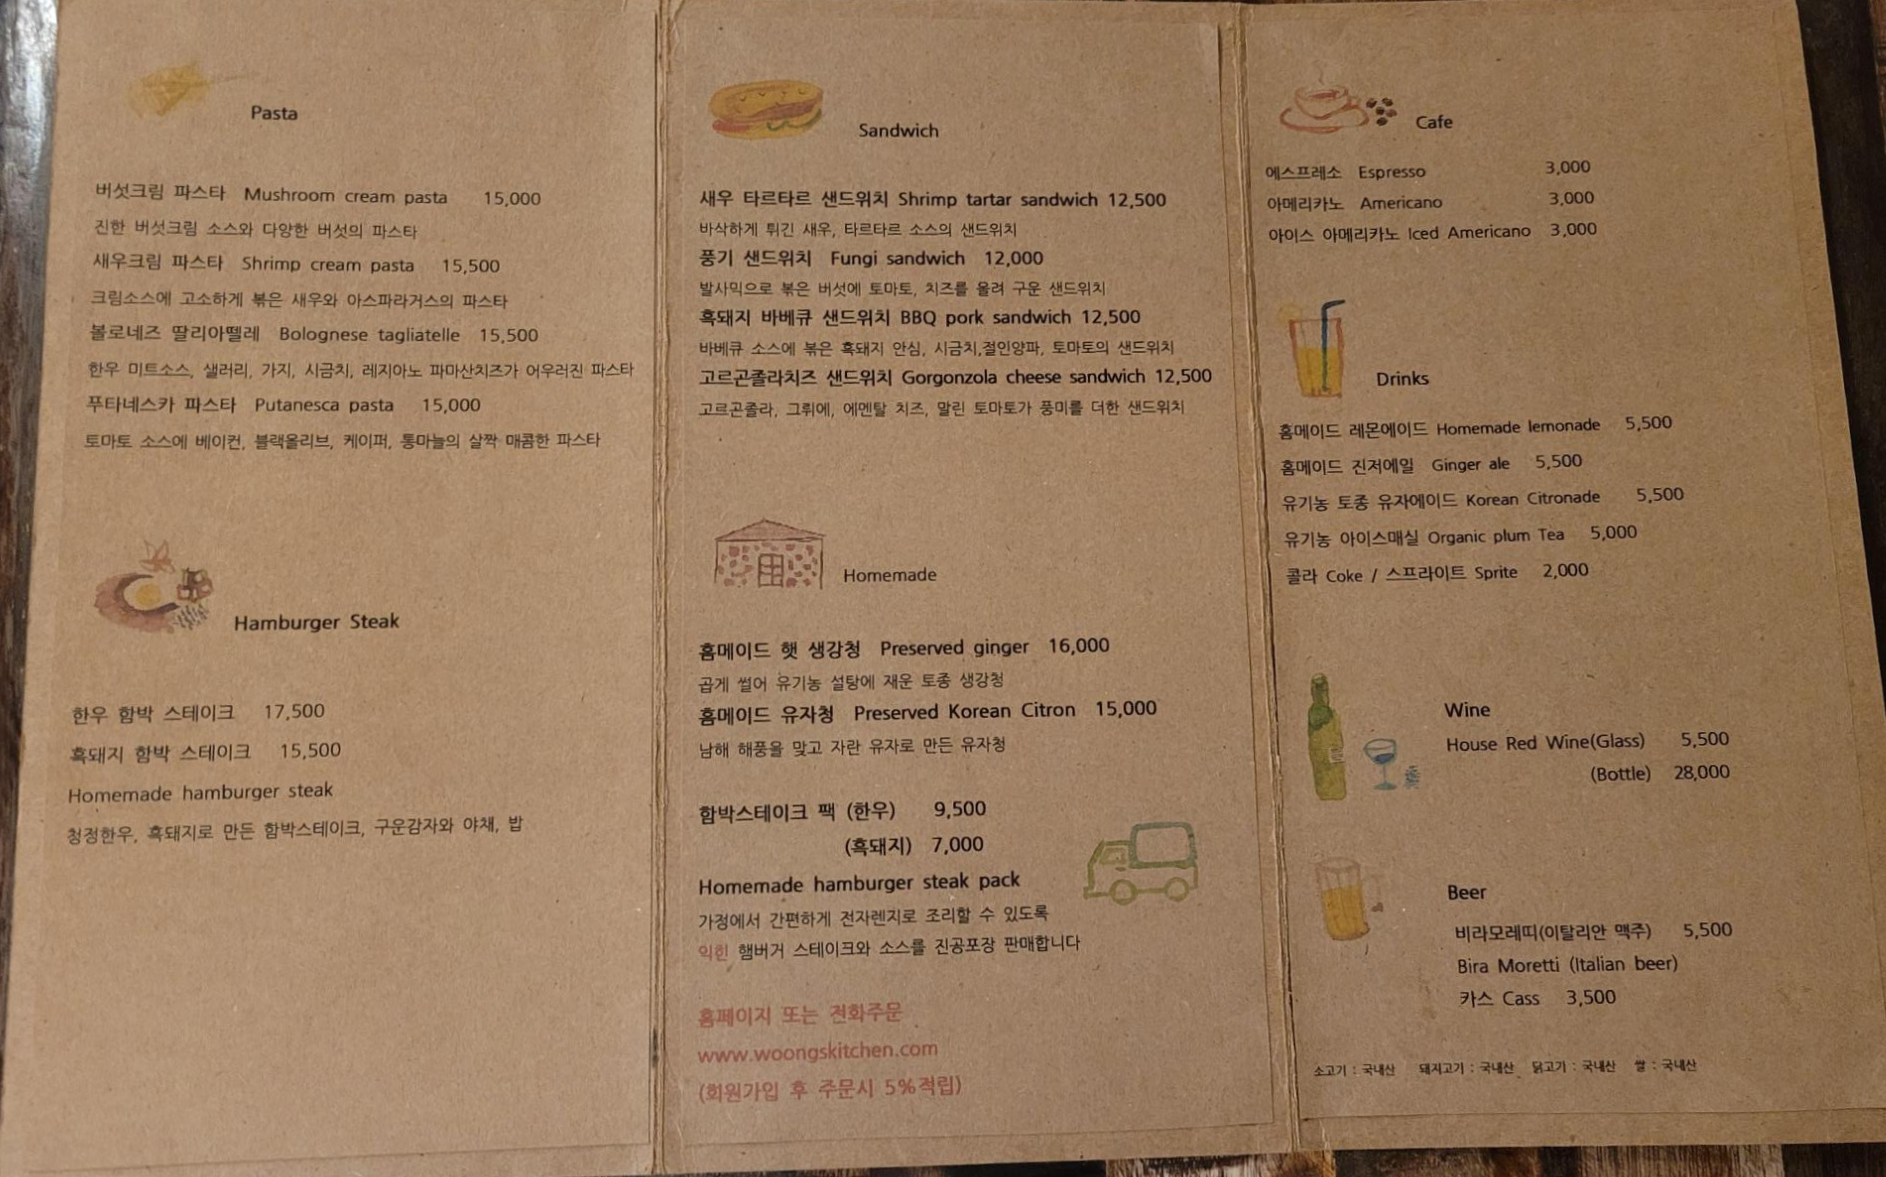 Pasta
버섯크림 파스타 Mushroom cream pasta 15,000
진한 버섯크림 소스와 다양한 버섯의 파스타
새우크림 파스타 Shrimp cream pasta 15,500
크림소스에 고소하게 볶은 새우와 아스파라거스의 파스타
볼로네즈 딸리아뗄레 Bolognese tagliatelle 15,500
한우 미트소스, 샐러리, 가지, 시금치, 레지아노 파마산치즈가 어우러진 파스타
푸타네스카 파스타 Putanesca pasta 15,000
토마토 소스에 베이컨, 블랙올리브, 케이퍼, 통마늘의 살짝 매콤한 파스타
Hamburger Steak
한우 함박 스테이크 17,500
흑돼지 함박 스테이크 15,500
Homemade hamburger steak
청정한우, 흑돼지로 만든 함박스테이크, 구운감자와 야채, 밥
Sandwich
새우 타르타르 샌드위치 Shrimp tartar sandwich 12,500
바삭하게 튀긴 새우, 타르타르 소스의 샌드위치
풍기 샌드위치 Fungi sandwich 12,000
발사믹으로 볶은 버섯에 토마토, 치즈를 올려 구운 샌드위치
흑돼지 바베큐 샌드위치 BBQ pork sandwich 12,500
바베큐 소스에 볶은 흑돼지 안심, 시금치,절인양파, 토마토의 샌드위치
고르곤졸라치즈 샌드위치 Gorgonzola cheese sandwich 12,500
고르곤졸라, 그뤼에, 에멘탈 치즈, 말린 토마토가 풍미를 더한 샌드위치
Homemade
홈메이드 햇 생강청 Preserved ginger 16,000
곱게 썰어 유기농 설탕에 재운 토종 생강청
홈메이드 유자청 Preserved Korean Citron 15,000
남해 해풍을 맞고 자란 유자로 만든 유자청
함박스테이크 팩 (한우) 9,500
(흑돼지) 7,000
Homemade hamburger steak pack
가정에서 간편하게 전자렌지로 조리할 수 있도록
익힌 햄버거 스테이크와 소스를 진공포장 판매합니다
홈페이지 또는 전화주문
www.woongskitchen.com
(회원가입 후 주문시 5%적립)
Cafe
에스프레소 Espresso 3,000
아메리카노 Americano 3,000
아이스 아메리카노 Iced Americano 3,000
Drinks
홈메이드 레몬에이드 Homemade lemonade 5,500
홈메이드 진저에일 Ginger ale 5,500
유기농 토종 유자에이드 Korean Citronade 5,500
유기농 아이스매실 Organic plum Tea 5,000
콜라 Coke / 스프라이트 Sprite 2,000
Wine
House Red Wine(Glass) 5,500
(Bottle) 28,000
Beer
비라모레띠(이탈리안 맥주) 5,500
Bira Moretti (Italian beer)
카스 Cass 3,500
소고기 : 국내산 돼지고기 : 국내산 닭고기 : 국내산 쌀 : 국내산